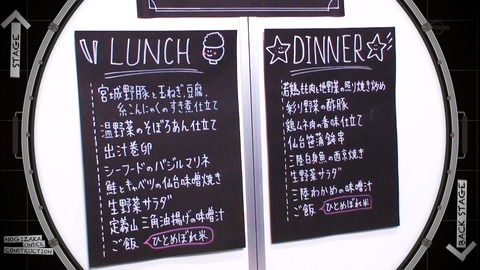 LUNCH
宮城野豚と玉ねぎ、豆腐
糸こんにゃくのすき煮仕立て
温野菜のそぼろあん仕立て
出汁巻卵
シーフードのバジルマリネ
鮭とキャベツの仙台味噌焼き
生野菜サラダ
定義山 三角油揚げの味噌汁
ご飯 ひとめぼれ米
DINNER
若鶏もも肉と地野菜の照り焼き炒め
彩り野菜の酢豚
鶏ムネ肉の香味仕立て
仙台笹蒲鉾串
三陸白身魚の西京焼き
生野菜サラダ
三陸わかめの味噌汁
ご飯 ひとめぼれ米
STAGE
BACK STAGE
NOGIZAKA
UNDER
CONSTRUCTION